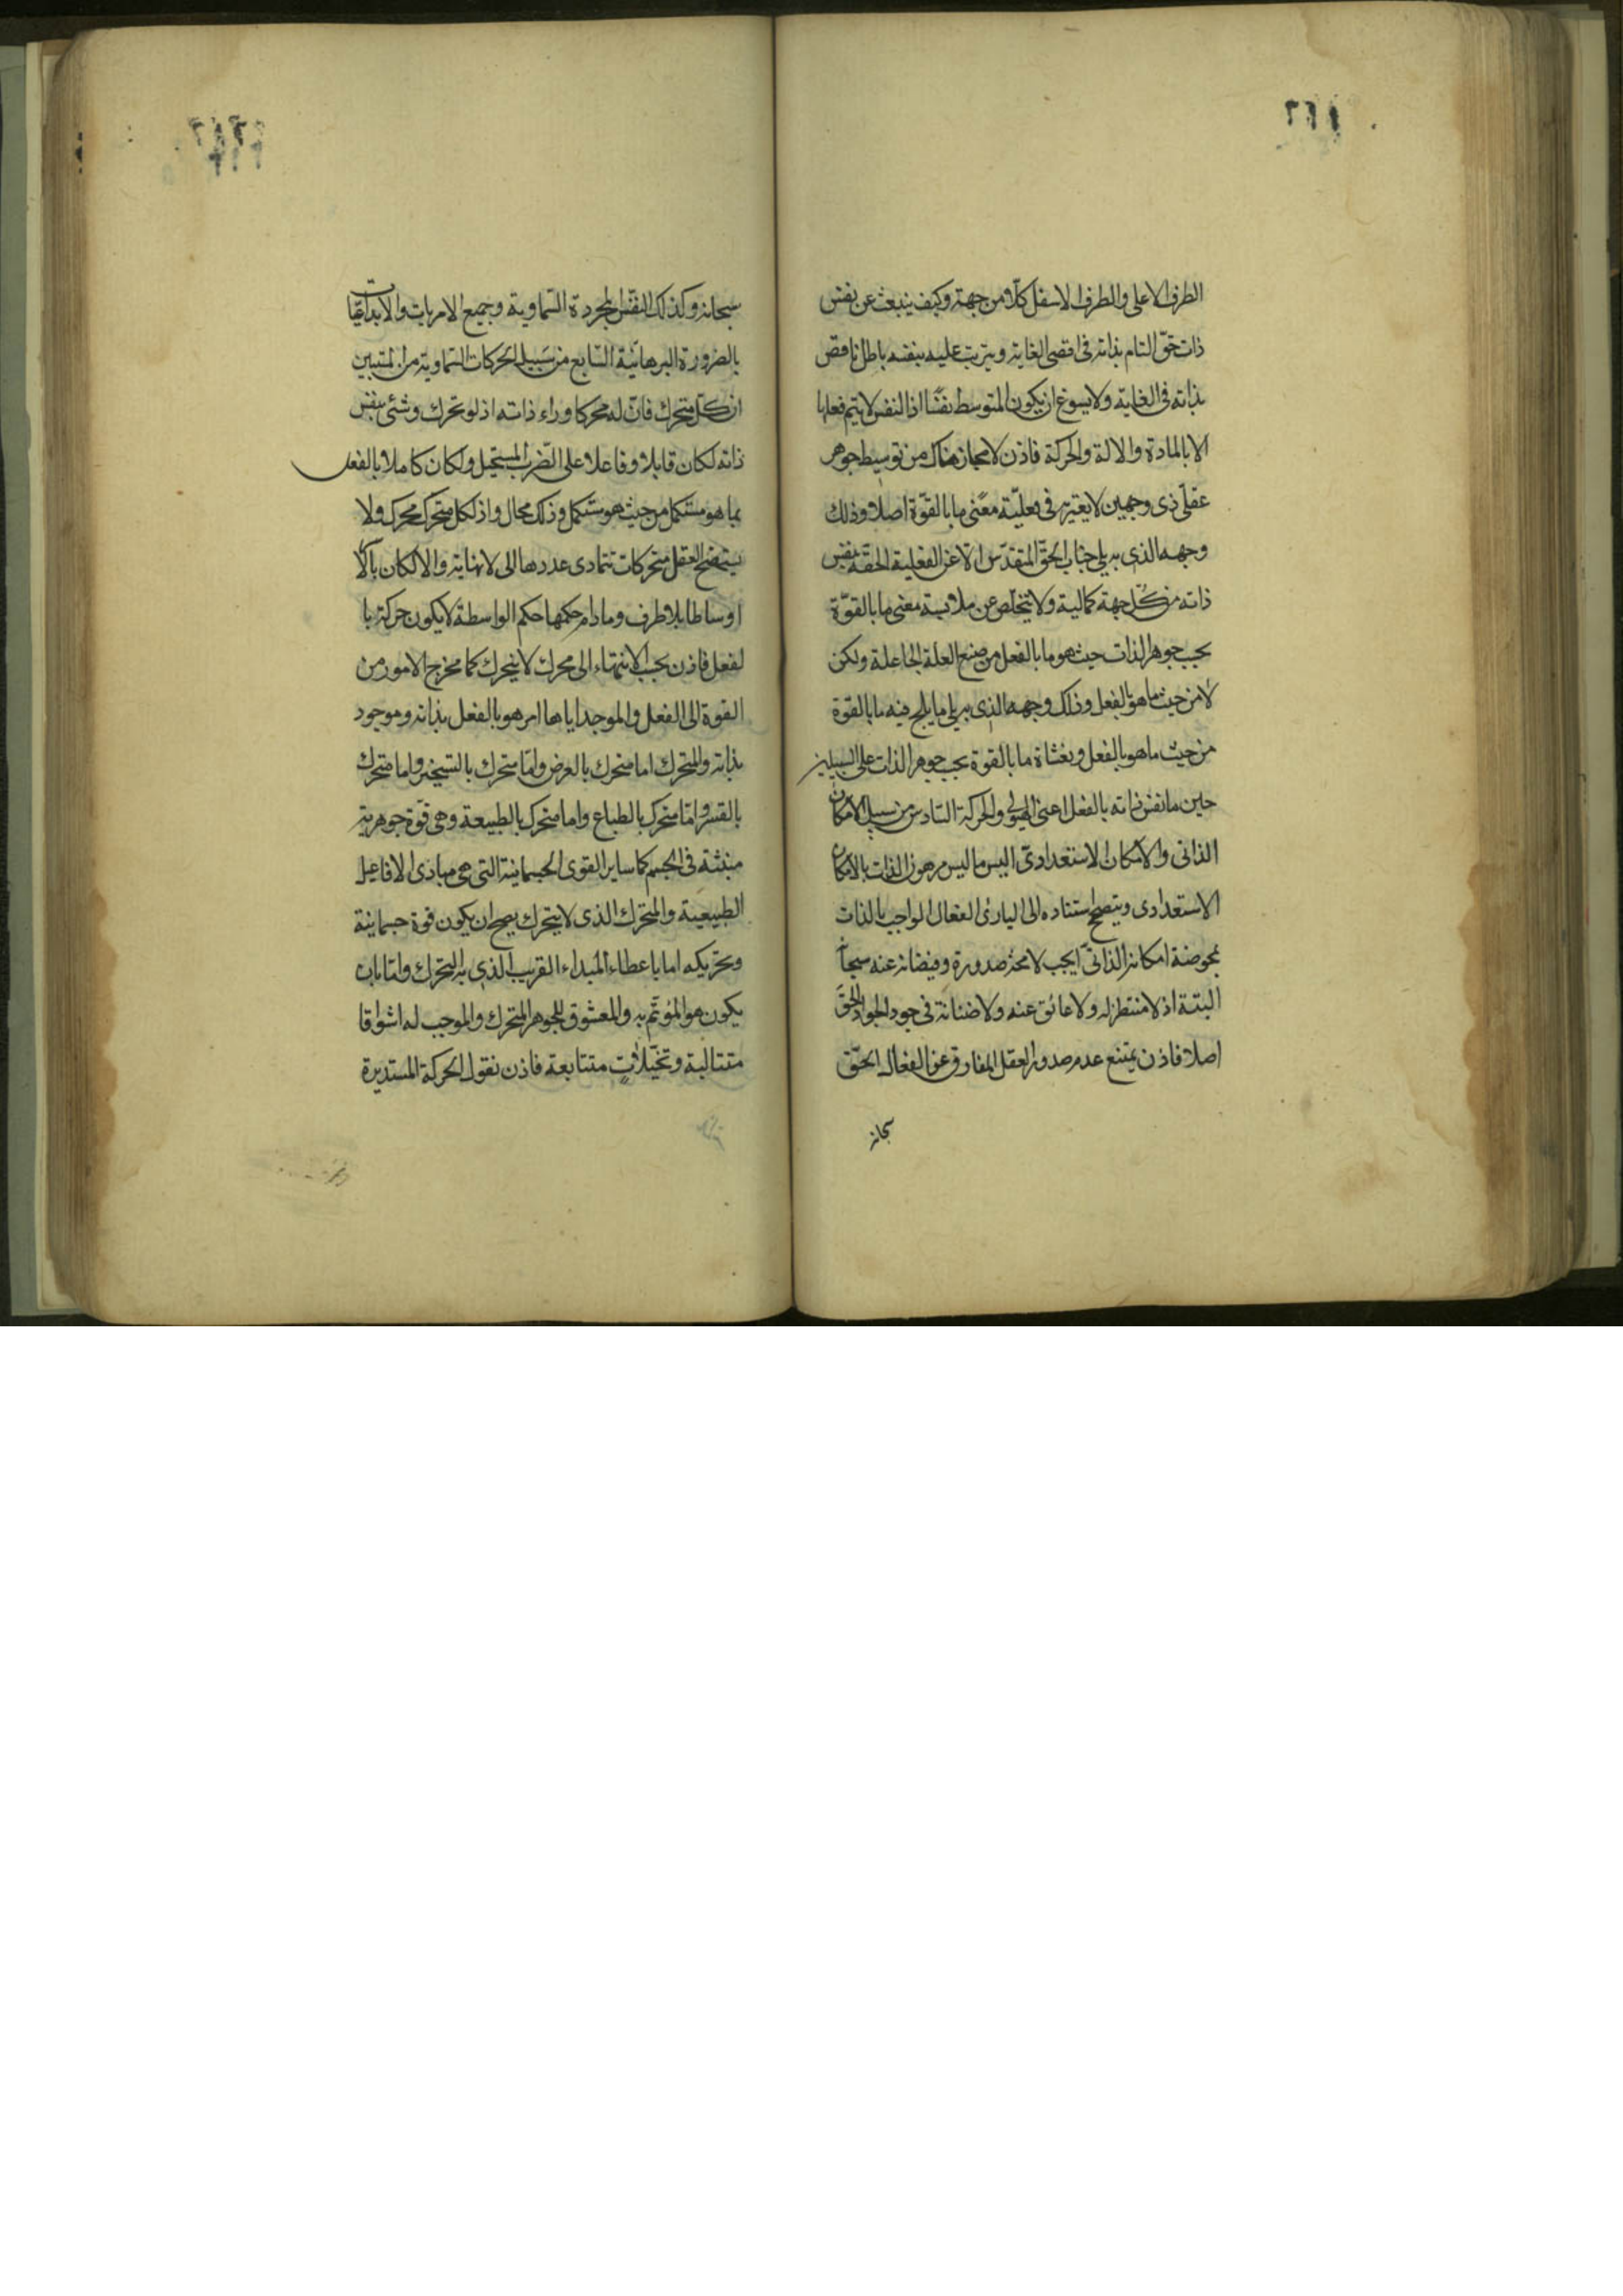 الطرف الاعلى والطرف الاسفل كلا من جهة وكيف ينبعث عن نفس
ذات حق التام بذاته فى اقصى الغاية ويترتب عليه بنفسه باطل ناقص
بذاته فى الغاية ولا يسوغ ان يكون المتوسط نفسا اذ النفس لا يتم فعلها
الا بالمادة والالة والحركة فاذن لا مجاز هناك من توسيط جوهر
عقلى ذى وجهين لا يعتريه فى فعليّة معنى ما بالقوّة اصلا وذلك
وجهه الذى به يلى جناب الحقّ المتقدّس الا عن الفعلية الحقة بنفس
ذاته من كل جهة كمالية ولا يتخلّص عن ملابسة معنى ما بالقوّة
بحسب جوهر الذات حيث هو ما بالفعل من صنع العلة الجاعلة ولكن
لا من حيث ما هو بالفعل وذلك وجهه الذى به يلى ما يلج فيه ما بالقوّة
من حيث ما هو بالفعل ويغشاه ما بالقوة بحسب جوهر الذات على السبيلين
حاين ما نفس ذاته بالفعل اعنى الهيولى والحركة السادس من سبيل الامكان
الذاتى والامكان الاستعدادىّ اليس ما ليس مرهون الذات بالامكان
الاستعدادى ويتصحح استناده الى البارئ الفعال الواجب بالذات
بحوضة امكانه الذاتىّ ايجب لا محة صدوره وفيضانه عنه سبحانه
البتة اذ لا منتظر له ولا عائق عنه ولا ضنانة فى جود الجواد الحقّ
اصلا فاذن يمتنع عدم صدور العقل المفارق عن الفعال الحقّ
سبحانه
سبحانه وكذلك النفس المجردة السّماوية وجميع الامريات والابداعيّات
بالضرورة البرهانيّة السّابع من سبيل الحركات السّماوية من المستبين
ان كلّ متحرك فانّ له محركا وراء ذاته اذ لو تحرك شئ بنفس
ذاته لكان قابلا وفاعلا على الضرب المستحيل ولكان كاملا بالفعل
بما هو مستكمل من حيث هو مستكمل وذلك محال واذ لكل متحرك محرك ولا
يستصح العقل متحركات تتمادى عددها الى لا نهاية والا لكان بآلا
اوساطا بلا طرف وما دام حكمها حكم الواسطة لا يكون حركة با
لفعل فاذن يجب الانتهاء الى محرك لا يتحرك كما مخرج الامور من
القوة الى الفعل والموجد اياها امر هو بالفعل بذاته وموجود
بذاته والمتحرك اما متحرك بالعرض وامّا متحرك بالتسخير واما متحرك
بالقسر وامّا متحرك بالطباع واما متحرك بالطبيعة وهى قوّة جوهرية
منبثة فى الجسم كما ساير القوى الجسمانية التى هى مبادى الافاعيل
الطبيعية والمتحرك الذى لا يتحرك يصح ان يكون قوة جسمانية
وتحريكه اما باعطاء المبداء القريب الذى به التحرك وامّا بان
يكون هو المؤتمّ به والمعشوق للجوهر المتحرك والموجب له اشواقا
متتالية وتخيّلات متتابعة فاذن نقول الحركة المستديرة